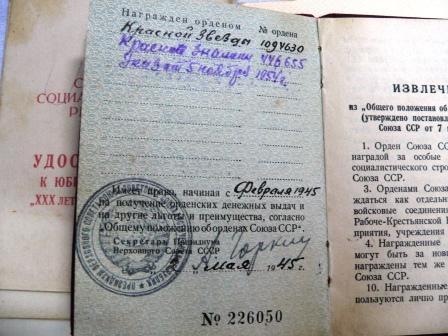 Награжден орденом № ордена
Красной Звезды 1094630
Красного Знамени 446655
Указ от 5 ноября 1954 г.
Имеет право, начиная с Февраля 1945
на получение орденских денежных выдач и
на другие льготы и преимущества, согласно
„Общему положению об орденах Союза ССР“.
Секретарь Президиума
Верховного Совета СССР
мая 1945 г.
№ 226050
УДОС
К ЮБИ
"XXX ЛЕТ
ИЗВЛЕЧЕ
из „Общего положения об
(утверждено постановл
Союза ССР от 7
1. Орден Союза СС
наградой за особые
социалистического строи
Союза ССР.
3. Орденами Союза
ждаться как отдель
войсковые соединения
Рабоче-Крестьянской
приятия, учреждения
4. Награжденные
могут быть за новы
награждены тем же
Союза ССР.
10. Награжденные
пользуются лично пр